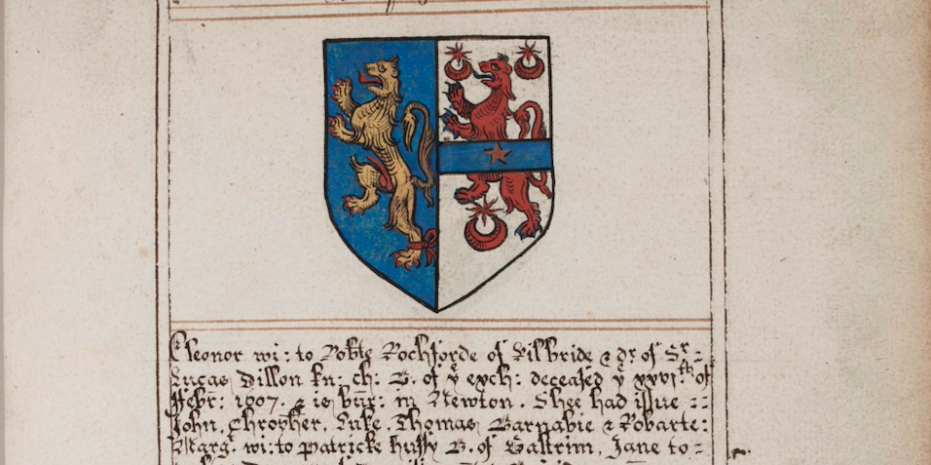 Eleonor wi: to Robte Rochforde of Kilbride & dr. of Sr.
Lucas Dillon kn: ch: B. of ye exch: deceased ye xxvi.th of
ffebr: 1607. & is bur: in Newton. Shee had issue ::
John, Chropher, Luke, Thomas Barnabie & Robarte:
Marg. wi: to Patricke Hussy B. of Galtrim, Jane to